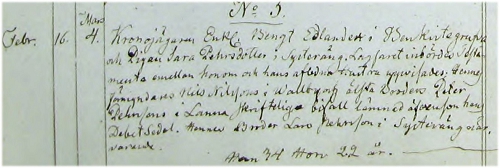 No 3.
Mars
Febr. 16. 4. Kronojägaren Enkl. Bengt Edlander i Benkets
och Pigan Sara Pehrsdotter i Systeräng. Lasarets
emellan honom och hans aflidna hustru uppvisades. Hennes
förmyndares Nils Nilssons i Wallby och äldsta broders Peter
Pehrssons i Lanna skriftliga bifall lemnad äfvensom hans
Debet Sedel. Hennes broder Lars Pehrsson i Systeräng när-
varande.
Man 34 Hon 22 år.